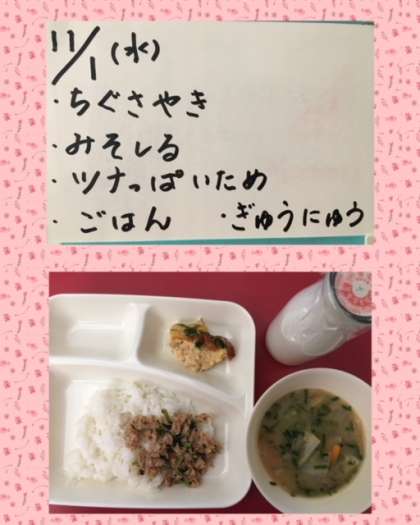 11/1(水)
・ちぐさやき
・みそしる
・ツナっぱいため
・ごはん ・ぎゅうにゅう